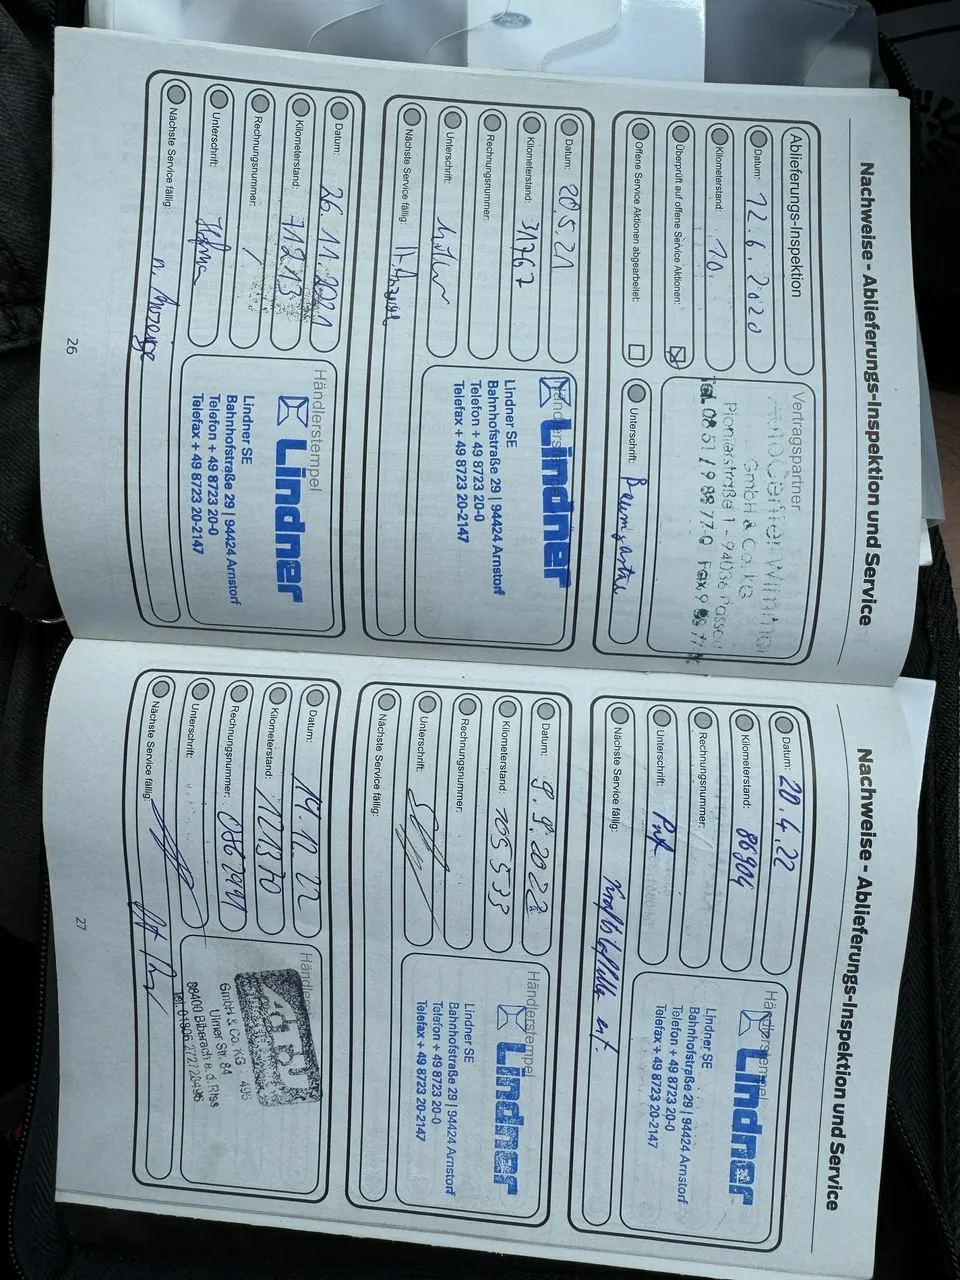 Nachweise - Ablieferungs-Inspektion und Service
Ablieferungs-Inspektion
Datum: 12.6.2020
Kilometerstand: 10.
Überprüft auf offene Service Aktionen:
Offene Service Aktionen abgearbeitet:
Vertragspartner
GmbH & Co. KG
Pionierstraße 1 - 94036 Passau
Tel. 08 51 / 9 88 77-0
Unterschrift:
Datum: 20.5.21
Kilometerstand: 31767
Rechnungsnummer:
Unterschrift:
Nächste Service fällig: n. Anzeige
Händlerstempel
Lindner
Lindner SE
Bahnhofstraße 29 | 94424 Arnstorf
Telefon + 49 8723 20-0
Telefax + 49 8723 20-2147
Datum: 26.11.2021
Kilometerstand: 71213
Rechnungsnummer: /
Unterschrift:
Nächste Service fällig: n. Anzeige
Händlerstempel
Lindner
Lindner SE
Bahnhofstraße 29 | 94424 Arnstorf
Telefon + 49 8723 20-0
Telefax + 49 8723 20-2147
26
Nachweise - Ablieferungs-Inspektion und Service
Datum: 20.4.22
Kilometerstand: 86904
Rechnungsnummer: /
Unterschrift:
Nächste Service fällig:
Händlerstempel
Lindner
Lindner SE
Bahnhofstraße 29 | 94424 Arnstorf
Telefon + 49 8723 20-0
Telefax + 49 8723 20-2147
Datum: 9.9.2022
Kilometerstand: 105533
Rechnungsnummer:
Unterschrift:
Nächste Service fällig:
Händlerstempel
Lindner
Lindner SE
Bahnhofstraße 29 | 94424 Arnstorf
Telefon + 49 8723 20-0
Telefax + 49 8723 20-2147
Datum: 14.12.22
Kilometerstand: 121370
Rechnungsnummer:
Unterschrift:
Nächste Service fällig:
GmbH & Co. KG 496
Ulmer Str. 84
88400 Biberach a. d. Riss
27